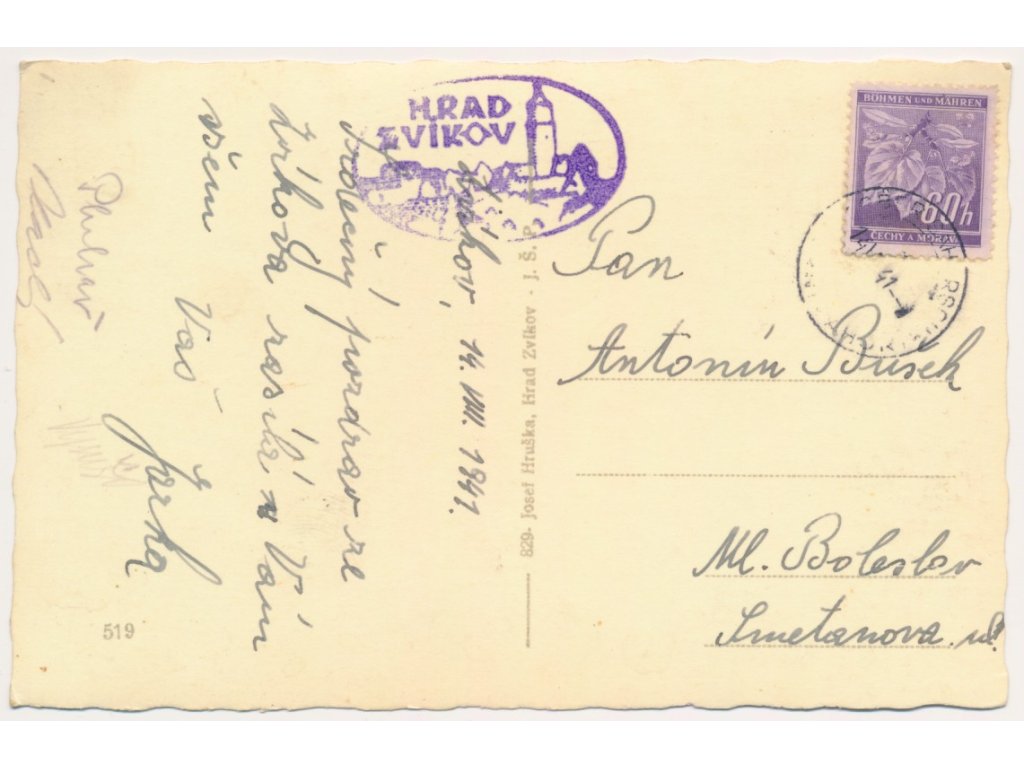 HRAD
ZVÍKOV
Zvíkov, 14. VIII. 1941.
Srdečný pozdrav ze
Zvíkova zasílá Vám
všem Váš Jirka
519
829- Josef Hruška, Hrad Zvíkov - J. Š. P.
BÖHMEN UND MÄHREN
60h
ČECHY A MORAVA
Pan
Antonín Bušek
Ml. Boleslav
Smetanova ul.